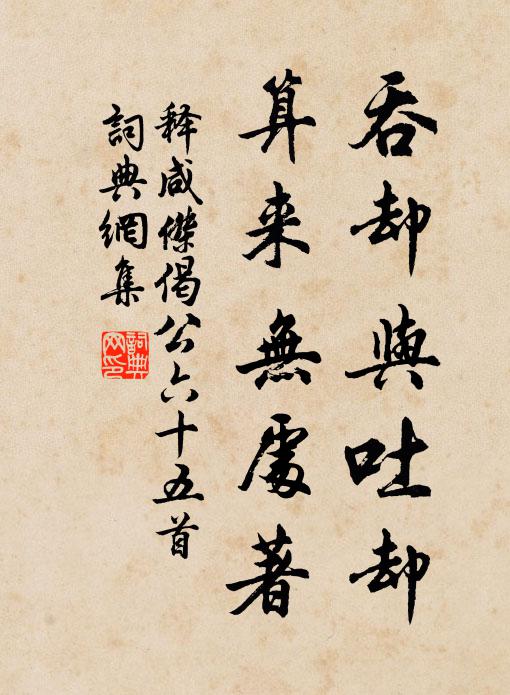 吞却與吐却
算来無處著
释咸傑偈公六十五首
詞典網集
詞典網印